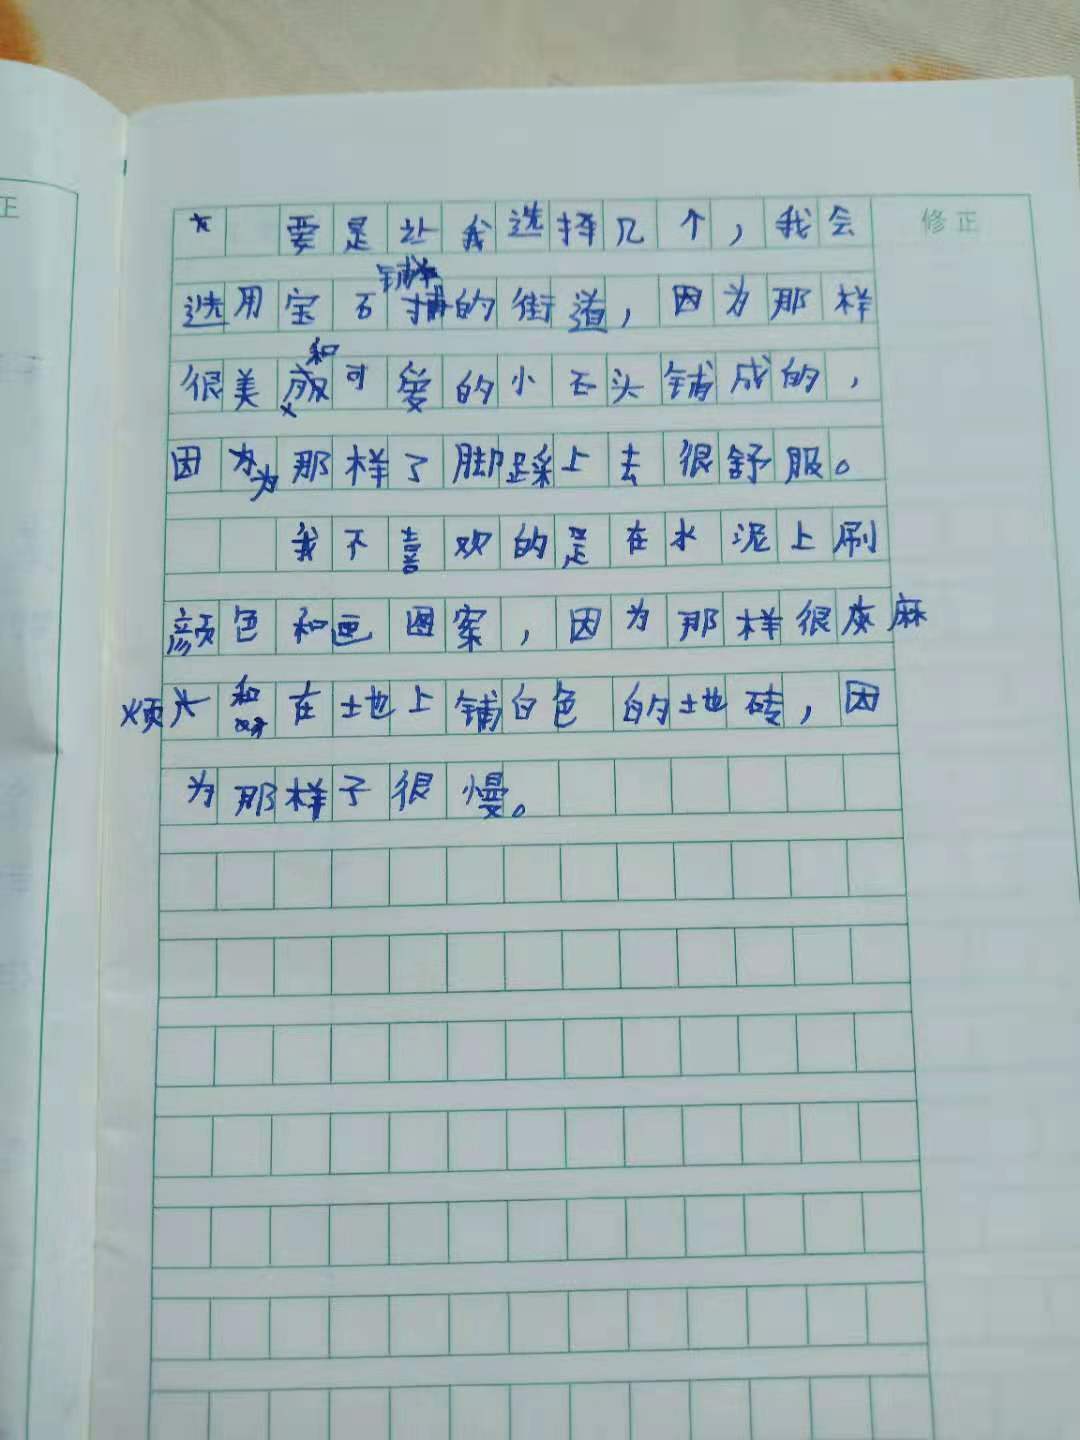 正
修正
要是让我选择几个，我会
选用宝石铺的街道，因为那样
很美和可爱的小石头铺成的，
因为那样了脚踩上去很舒服。
我不喜欢的是在水泥上刷
颜色和画图案，因为那样很麻
烦和在土地上铺白色的地砖，因
为那样子很慢。